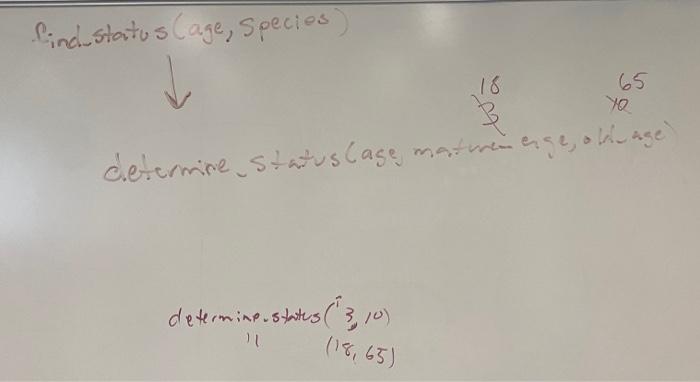 find_status(age, species)
18 65
3 10
determine_status(age, mature_age, old_age)
determine_status( 3, 10)
" (18, 65)